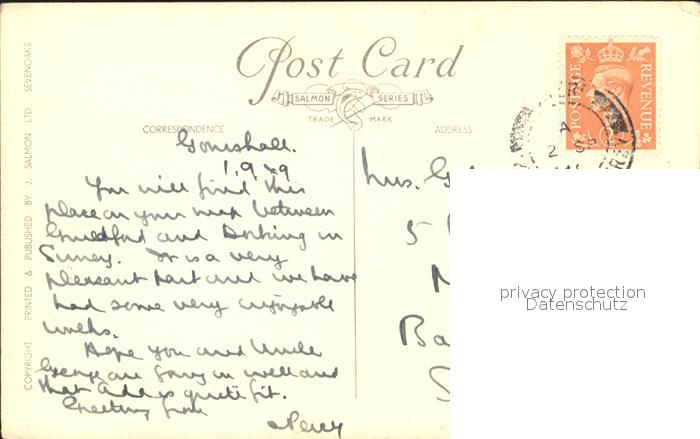 Post Card
SALMON SERIES
TRADE MARK
CORRESPONDENCE
ADDRESS
Gomshall.
1.9.49
You will find this
place on your map between
Guildford and Dorking in
Surrey. It is a very
pleasant part and we have
had some very enjoyable
walks.
Hope you and Uncle
George are going on well and
that Ada is quite fit.
Greetings from
Percy
Mrs. G
5
Ba
S
POSTAGE
REVENUE
A
2 SP
privacy protection
Datenschutz
COPYRIGHT. PRINTED & PUBLISHED BY J. SALMON LTD., SEVENOAKS